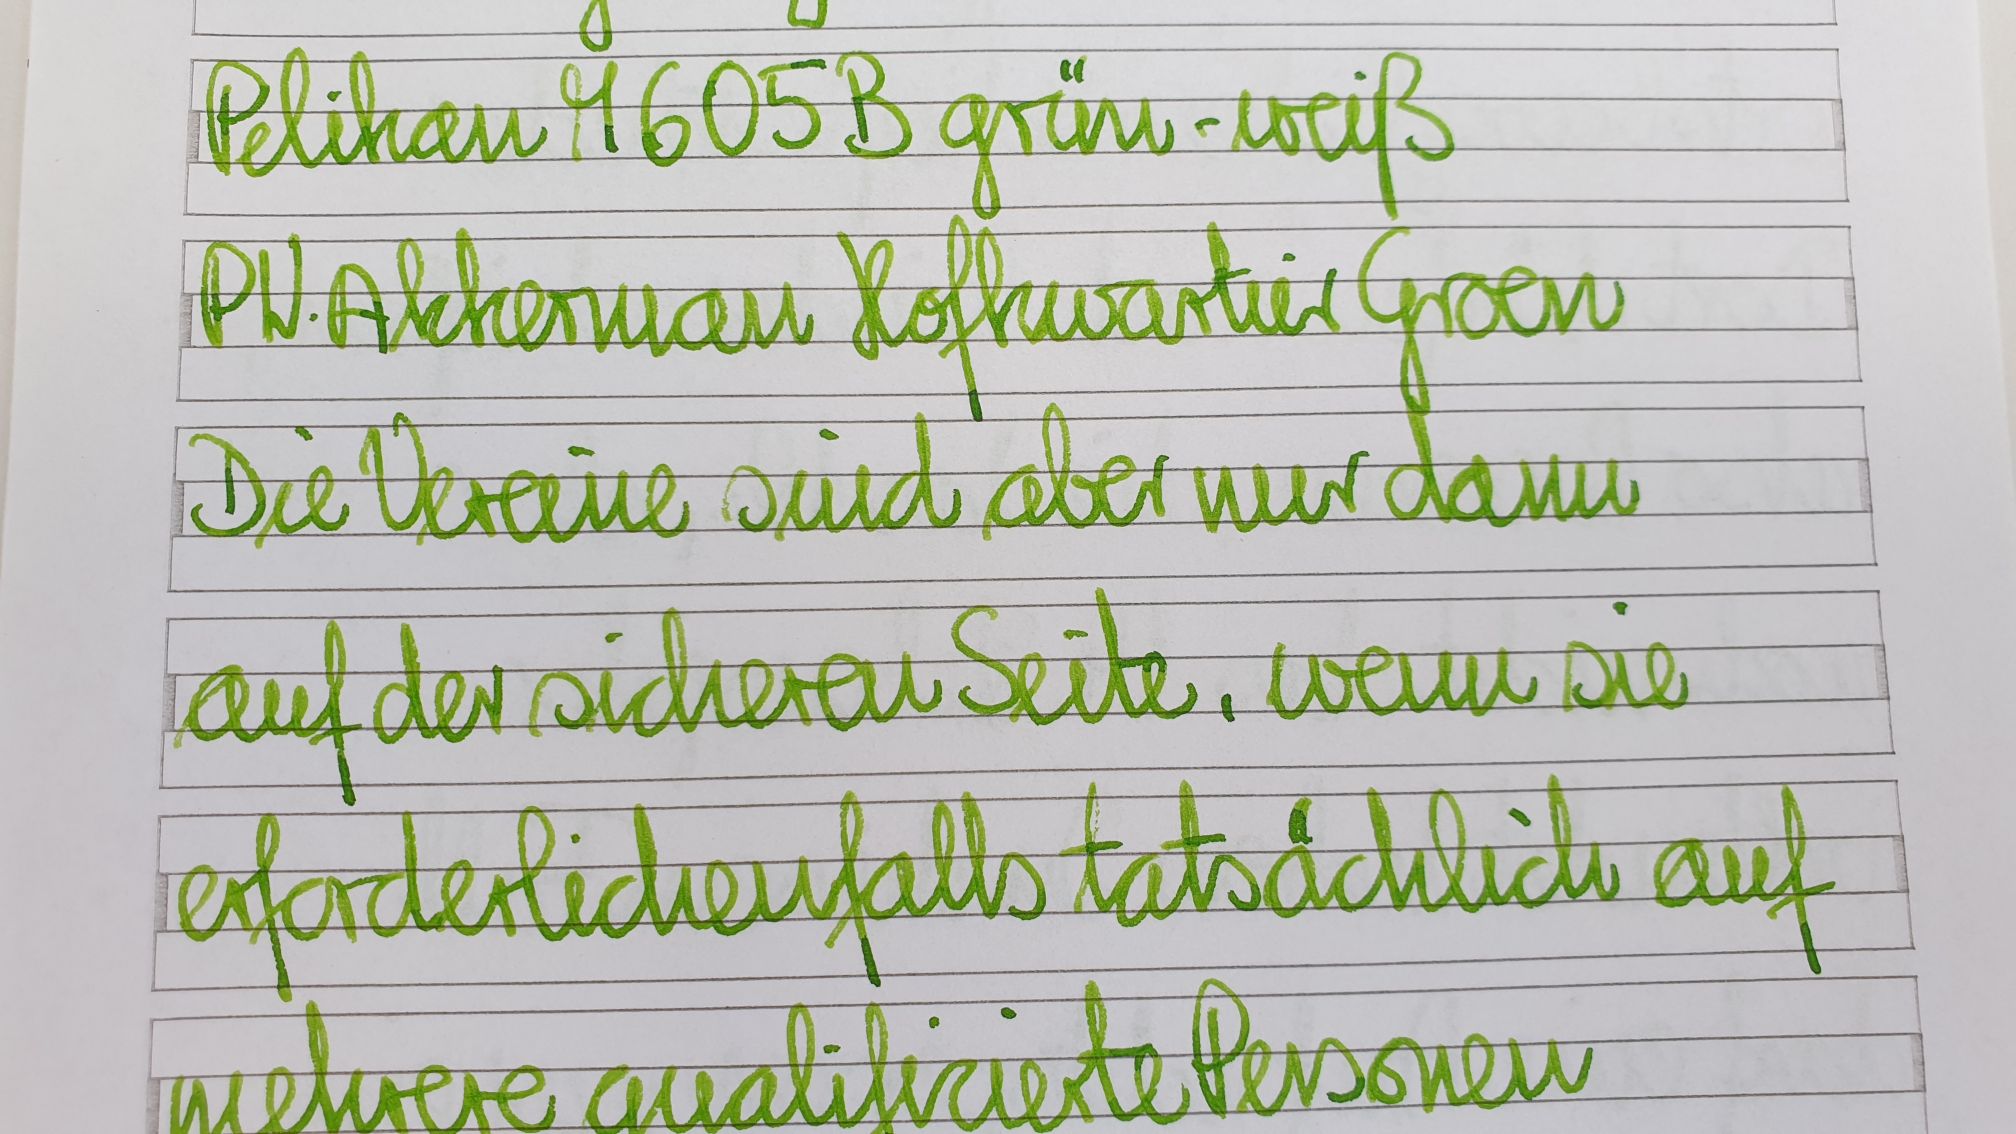 Pelikan M605B grün-weiß
P.W. Akkerman Hofkwartier Groen
Die Vereine sind aber nur dann
auf der sicheren Seite, wenn sie
erforderlichenfalls tatsächlich auf
mehrere qualifizierte Personen